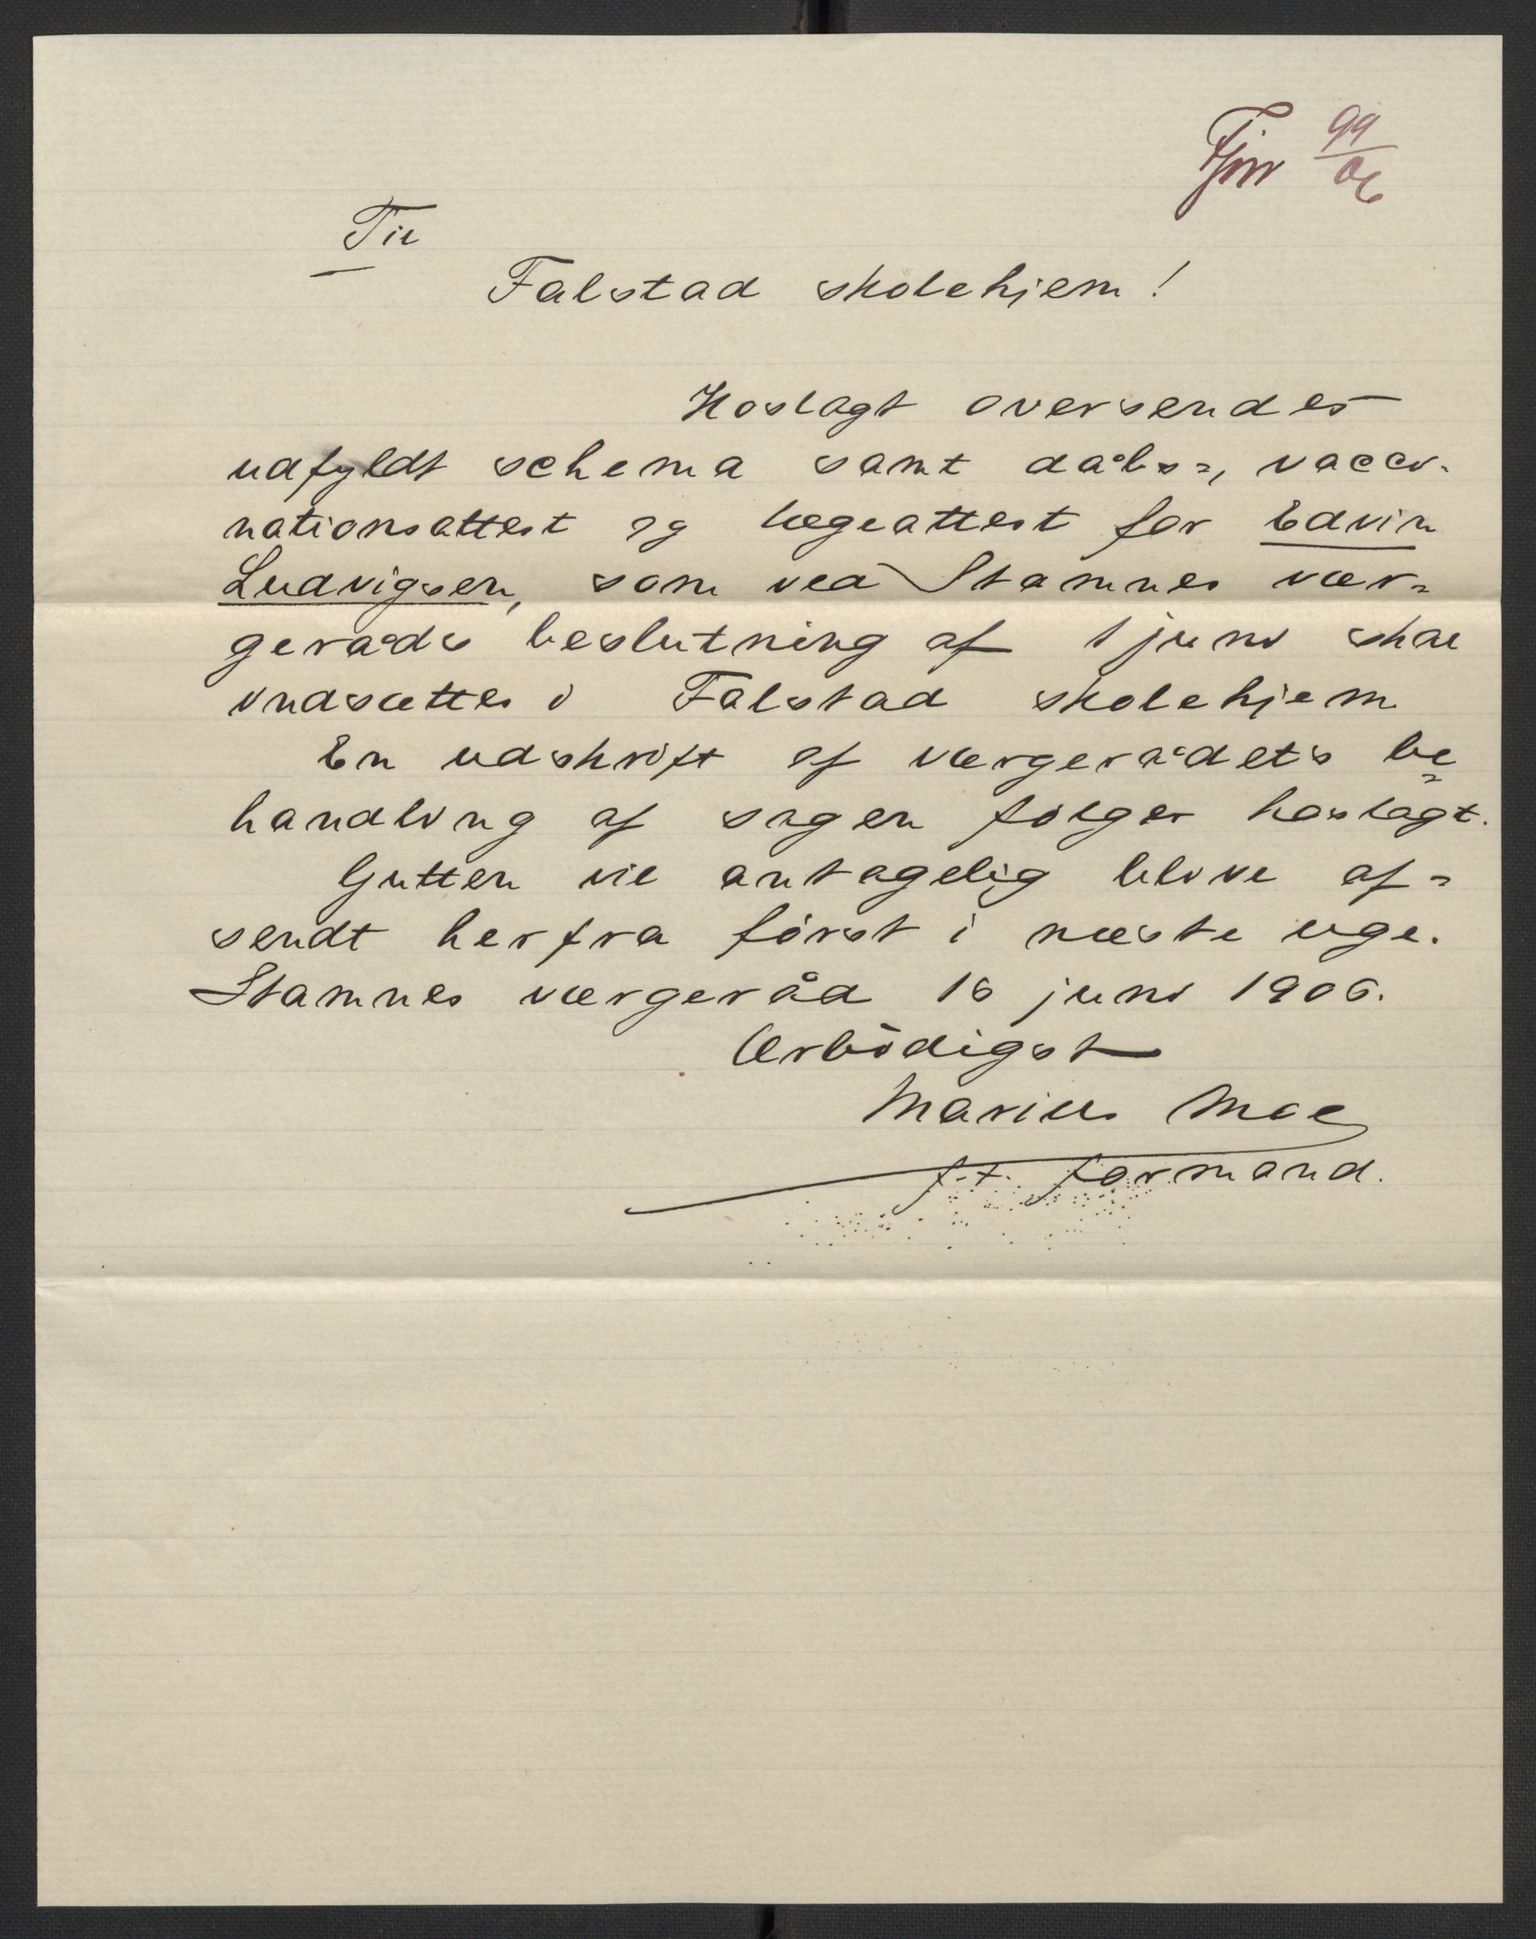 Fjnr 99/06
Til
Falstad skolehjem!
Hoslagt oversendes
udfyldt schema samt dåbs=, vacci-
nationsattest og lægeattest for Edvin
Ludvigsen, som ved Stamnes vær=
geråds beslutning af 1 juni skal
indsættes i Falstad skolehjem
En udskrift af værgerådets be=
handling af sagen følger hoslagt.
Gutten vil antagelig blive af=
sendt herfra først i næste uge.
Stamnes værgeråd 16 juni 1906.
Ærbödigst
Marius Moe
f.t. formand.